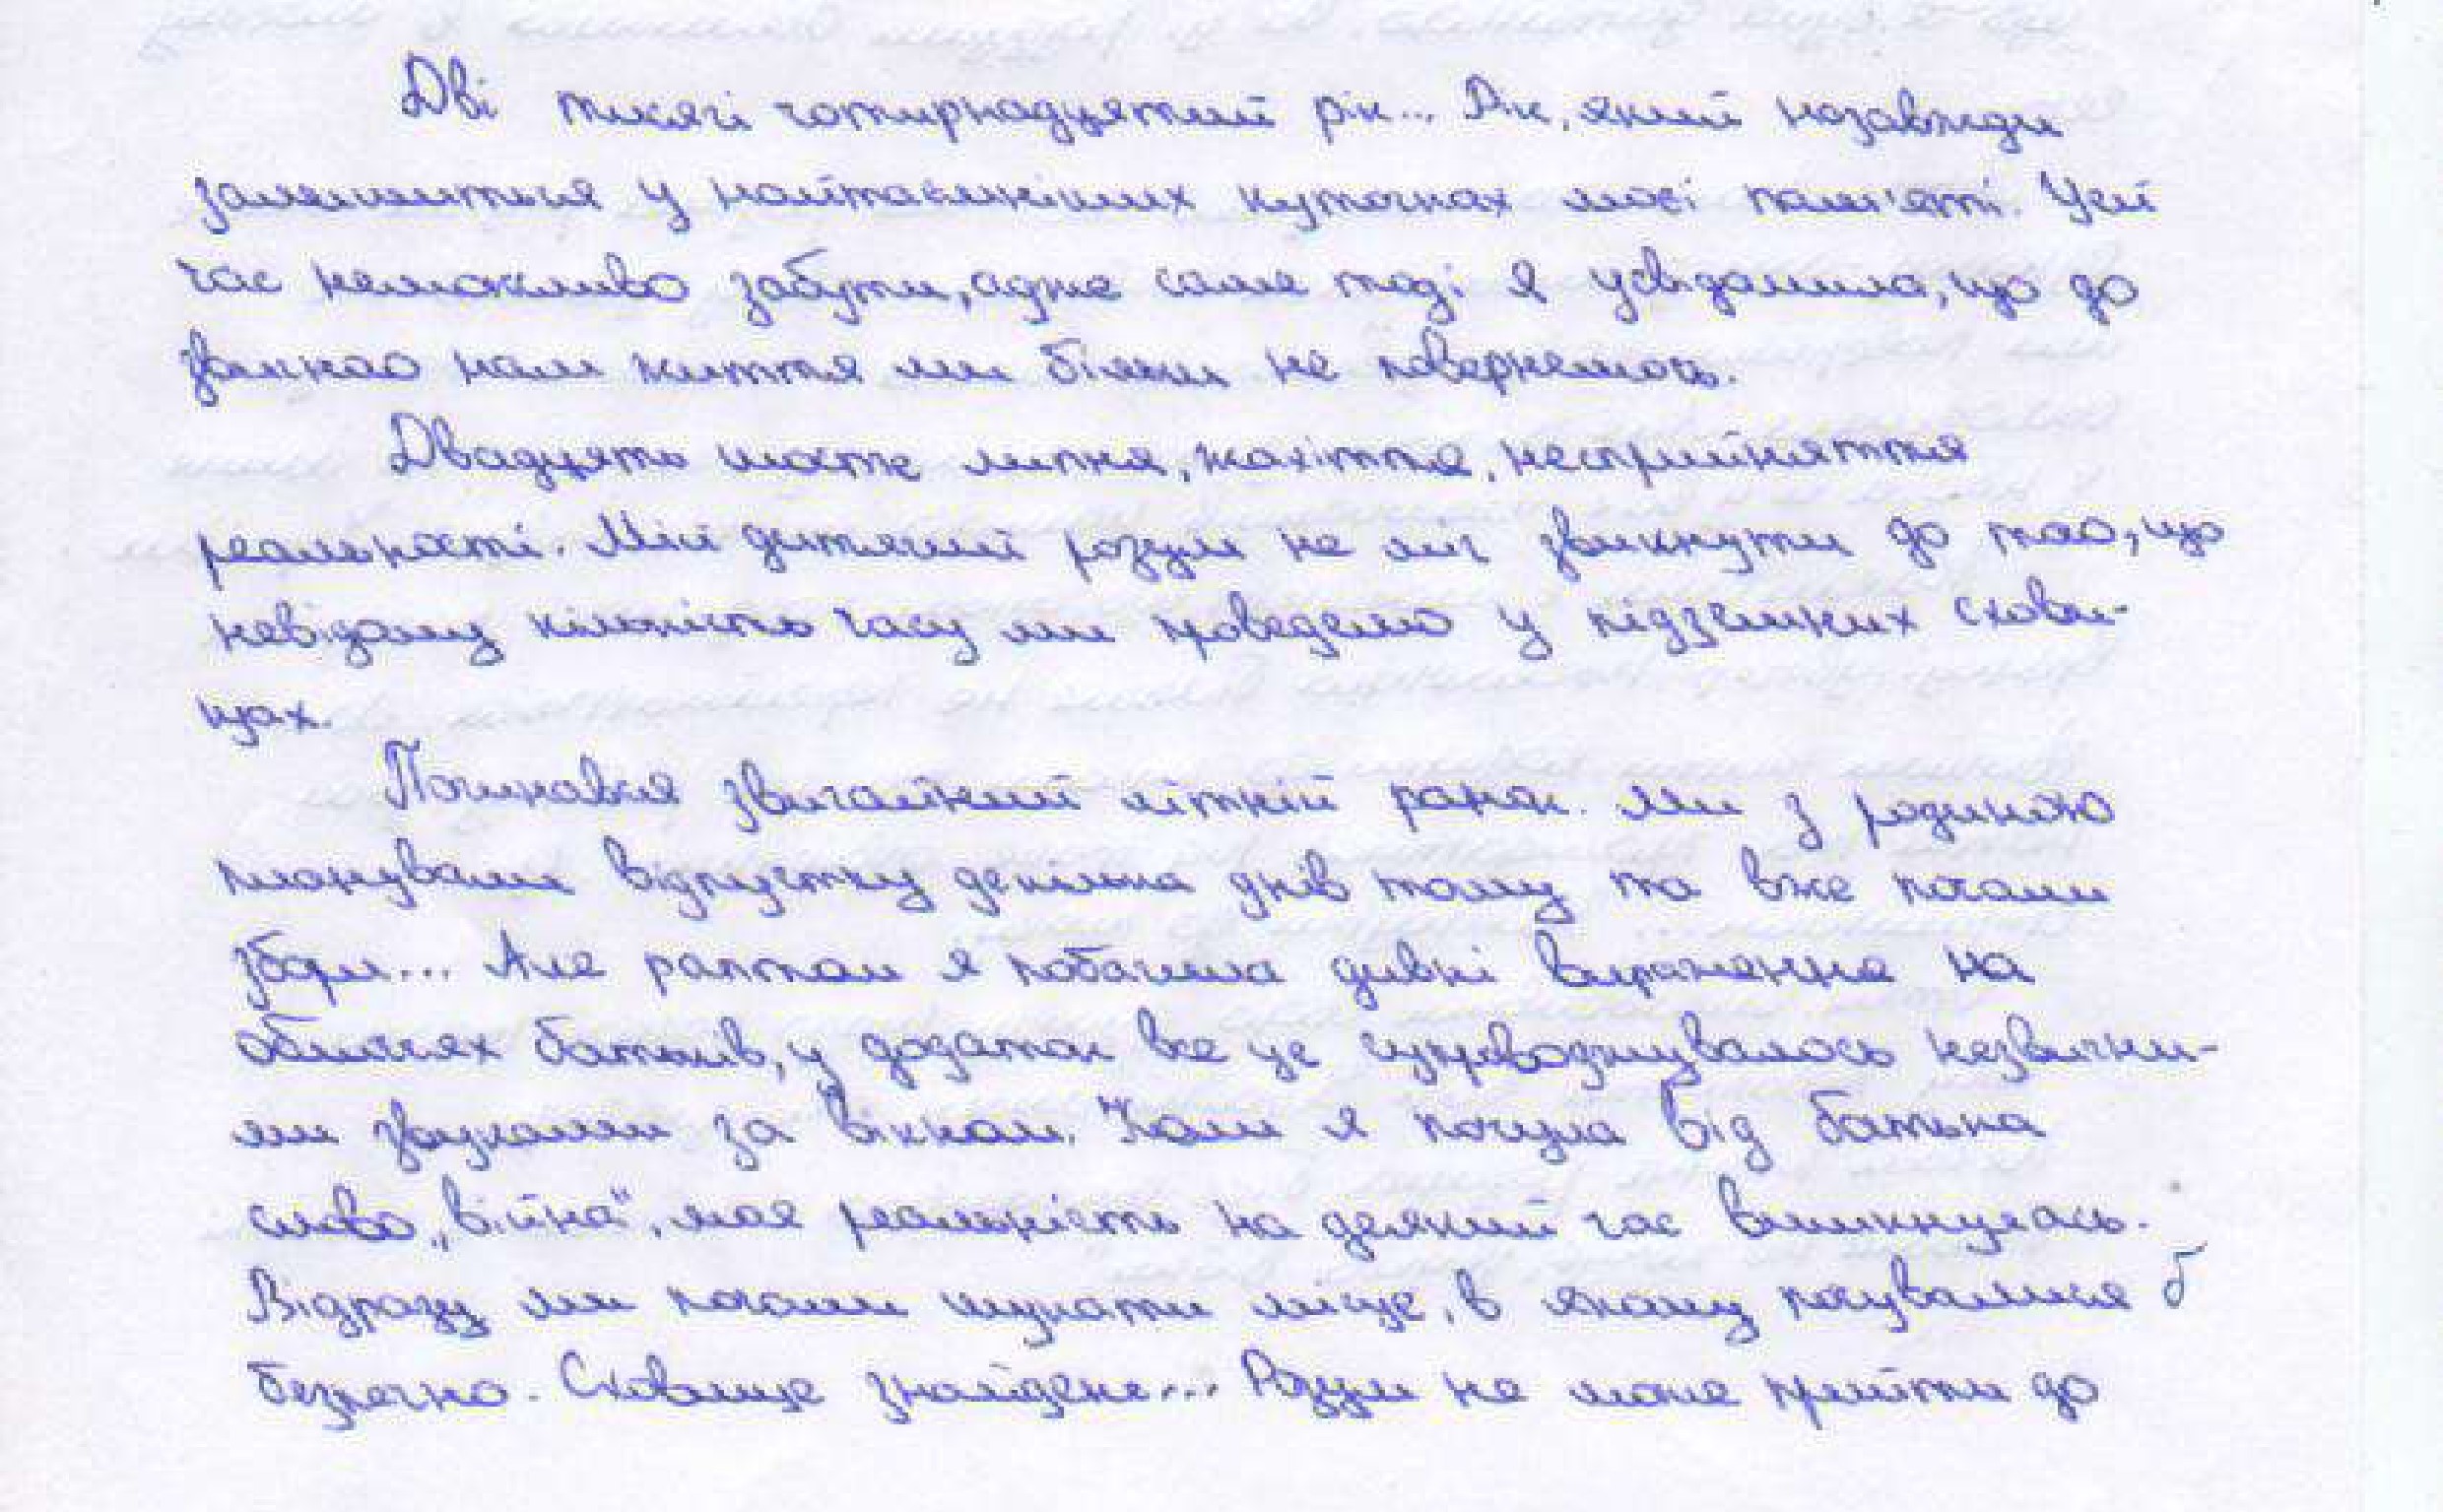 Дві тисячі чотирнадцятий рік... Рік, який назавжди
залишиться у найтаємніших куточках моєї пам'яті. Цей
час неможливо забути, адже саме тоді я усвідомила, що до
звичного нам життя ми більш не повернемось.
Двадцять шосте липня, жахіття, несприйняття
реальності. Мій дитячий розум не міг звикнути до того, що
невідому кількість часу ми проведемо у підземних схови-
щах.
Починався звичайний літній ранок. Ми з родиною
планували відпустку декілька днів тому та вже почали
збори... Але раптом я побачила дивні вираження на
обличчях батьків, у додаток все це супроводжувалось незвични-
ми звуками за вікном. Коли я почула від батька
слово „війна", моя реальність на деякий час вимкнулась.
Відразу ми почали шукати місце, в якому почувалися б
безпечно. Сховище знайдене... Розум не може прийти до